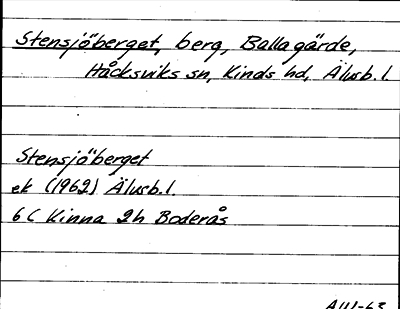 Stensjöberget, berg, Ballagärde,
Håcksviks sn, Kinds hd, Älvsb. l.
Stensjöberget
ek (1962) Älvsb. l.
6C Kinna 2h Boderås